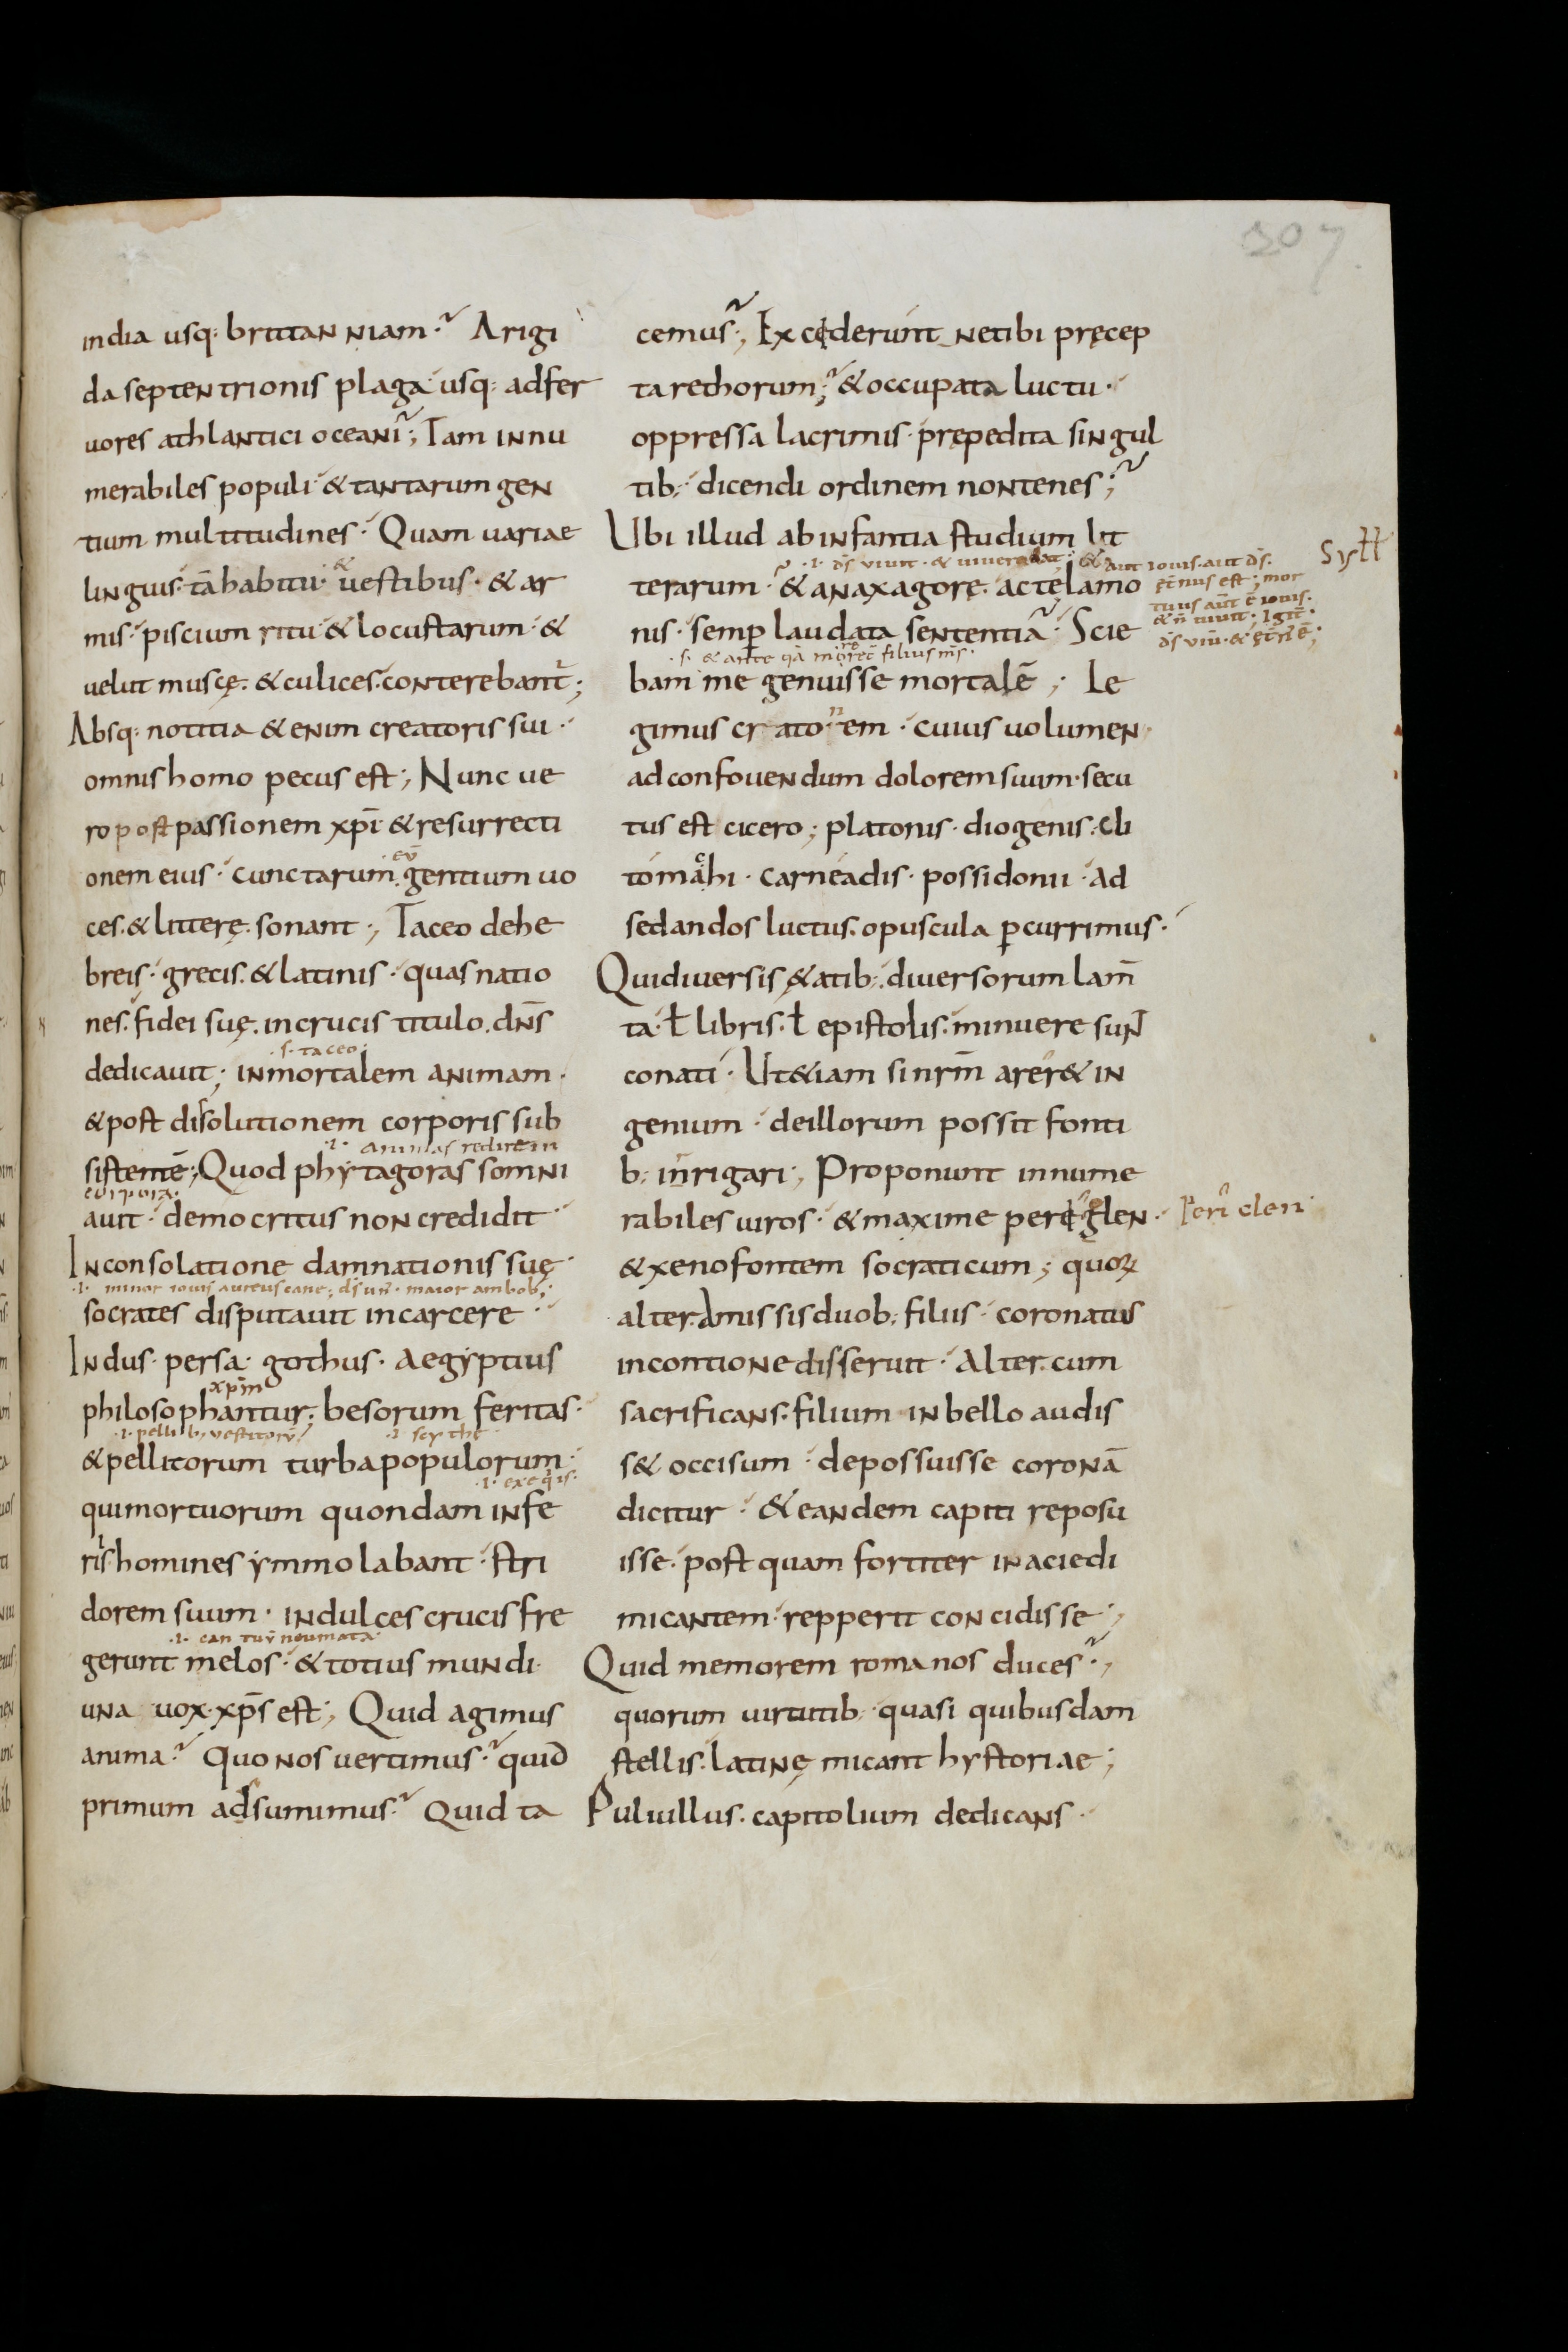 307
india usq: brittanniam. Arigi
da septentrionis plaga usq: adfer
uores athlantici oceani; Iam innu
merabiles populi & tantarum gen
tium multitudines. Quam uariae
&
linguis. tā habitu. uestibus. & ar
mis. piscium ritu & locustarum. &
uelut muscę. & culices. conterebant̄;
Absq: notitia & enim creatoris sui.
omnis homo pecus est; Nunc ue
ro post passionem xp̄i. & resurrecti
onem eius. cunctarum gentium uo
ces. & litterę. sonant; Taceo dehe
breis. grecis. & latinis. quas natio
nes. fidei suę. incrucis titulo. dn̄s
.s. taceo.
dedicauit; inmortalem animam.
& post dissolutionem corporis sub
.i. animas redire in
sistentē; Quod phytagoras somni
corpora.
auit. democritus non credidit.
Inconsolatione damnationis suę.
socrates disputauit incarcere.
Indus. persa. gothus. Aegyptius
xp̄m
philosophantur. besorum feritas.
.i. pellib; uestitorū .i. scythę
& pellitorum turba populorum.
.i. exequiis.
qui mortuorum quondam infe
riis homines ymmolabant. stri
dorem suum. indulces crucis fre
gerunt melos. & totius mundi.
una uox. xp̄s est; Quid agimus
anima. Quo nos uertimus. quid
primum adsumimus. Quid ta
cemus; Exciderunt netibi pręcep
ta rethorum; & occupata luctu.
oppressa lacrimis. prępedita singul
tib; dicendi ordinem nontenes;
Ubi illud abinfantia studium lit
terarum. & anaxagorę. ac telamo
nis. semp laudata sententia. Scie
bam me genuisse mortalē; Le
gimus cratorem. cuius uolumen
ad confouendum dolorem suum. secu
tus est cicero; platonis. diogenis. cli
tomachi. carneadis. possidonii. ad
sedandos luctus. opuscula pcurrimus.
Qui diuersis &atib; diuersorum lam̄
ta. ł libris. ł epistolis. minuere sun̄
conati. Ut&iam si nrm̄ arer& in
genium. deillorum possit fonti
b; inrigari; Proponunt innume
rabiles uiros. & maxime periclen.
Periclen
& xenofontem socraticum; quoꝝ
alter. Amissis duob; filiis. coronatus
incontione disseruit. Alter. cum
sacrificans. filium in bello audis
s& occisum. depossuisse coronā
dicitur. & eandem capiti reposu
isse. post quam fortiter inacie di
micantem. repperit concidisse;
Quid memorem romanos duces;
quorum uirtutib; quasi quibusdam
stellis. latinę micant hystoriae;
Puluillus. capitolium dedicans.